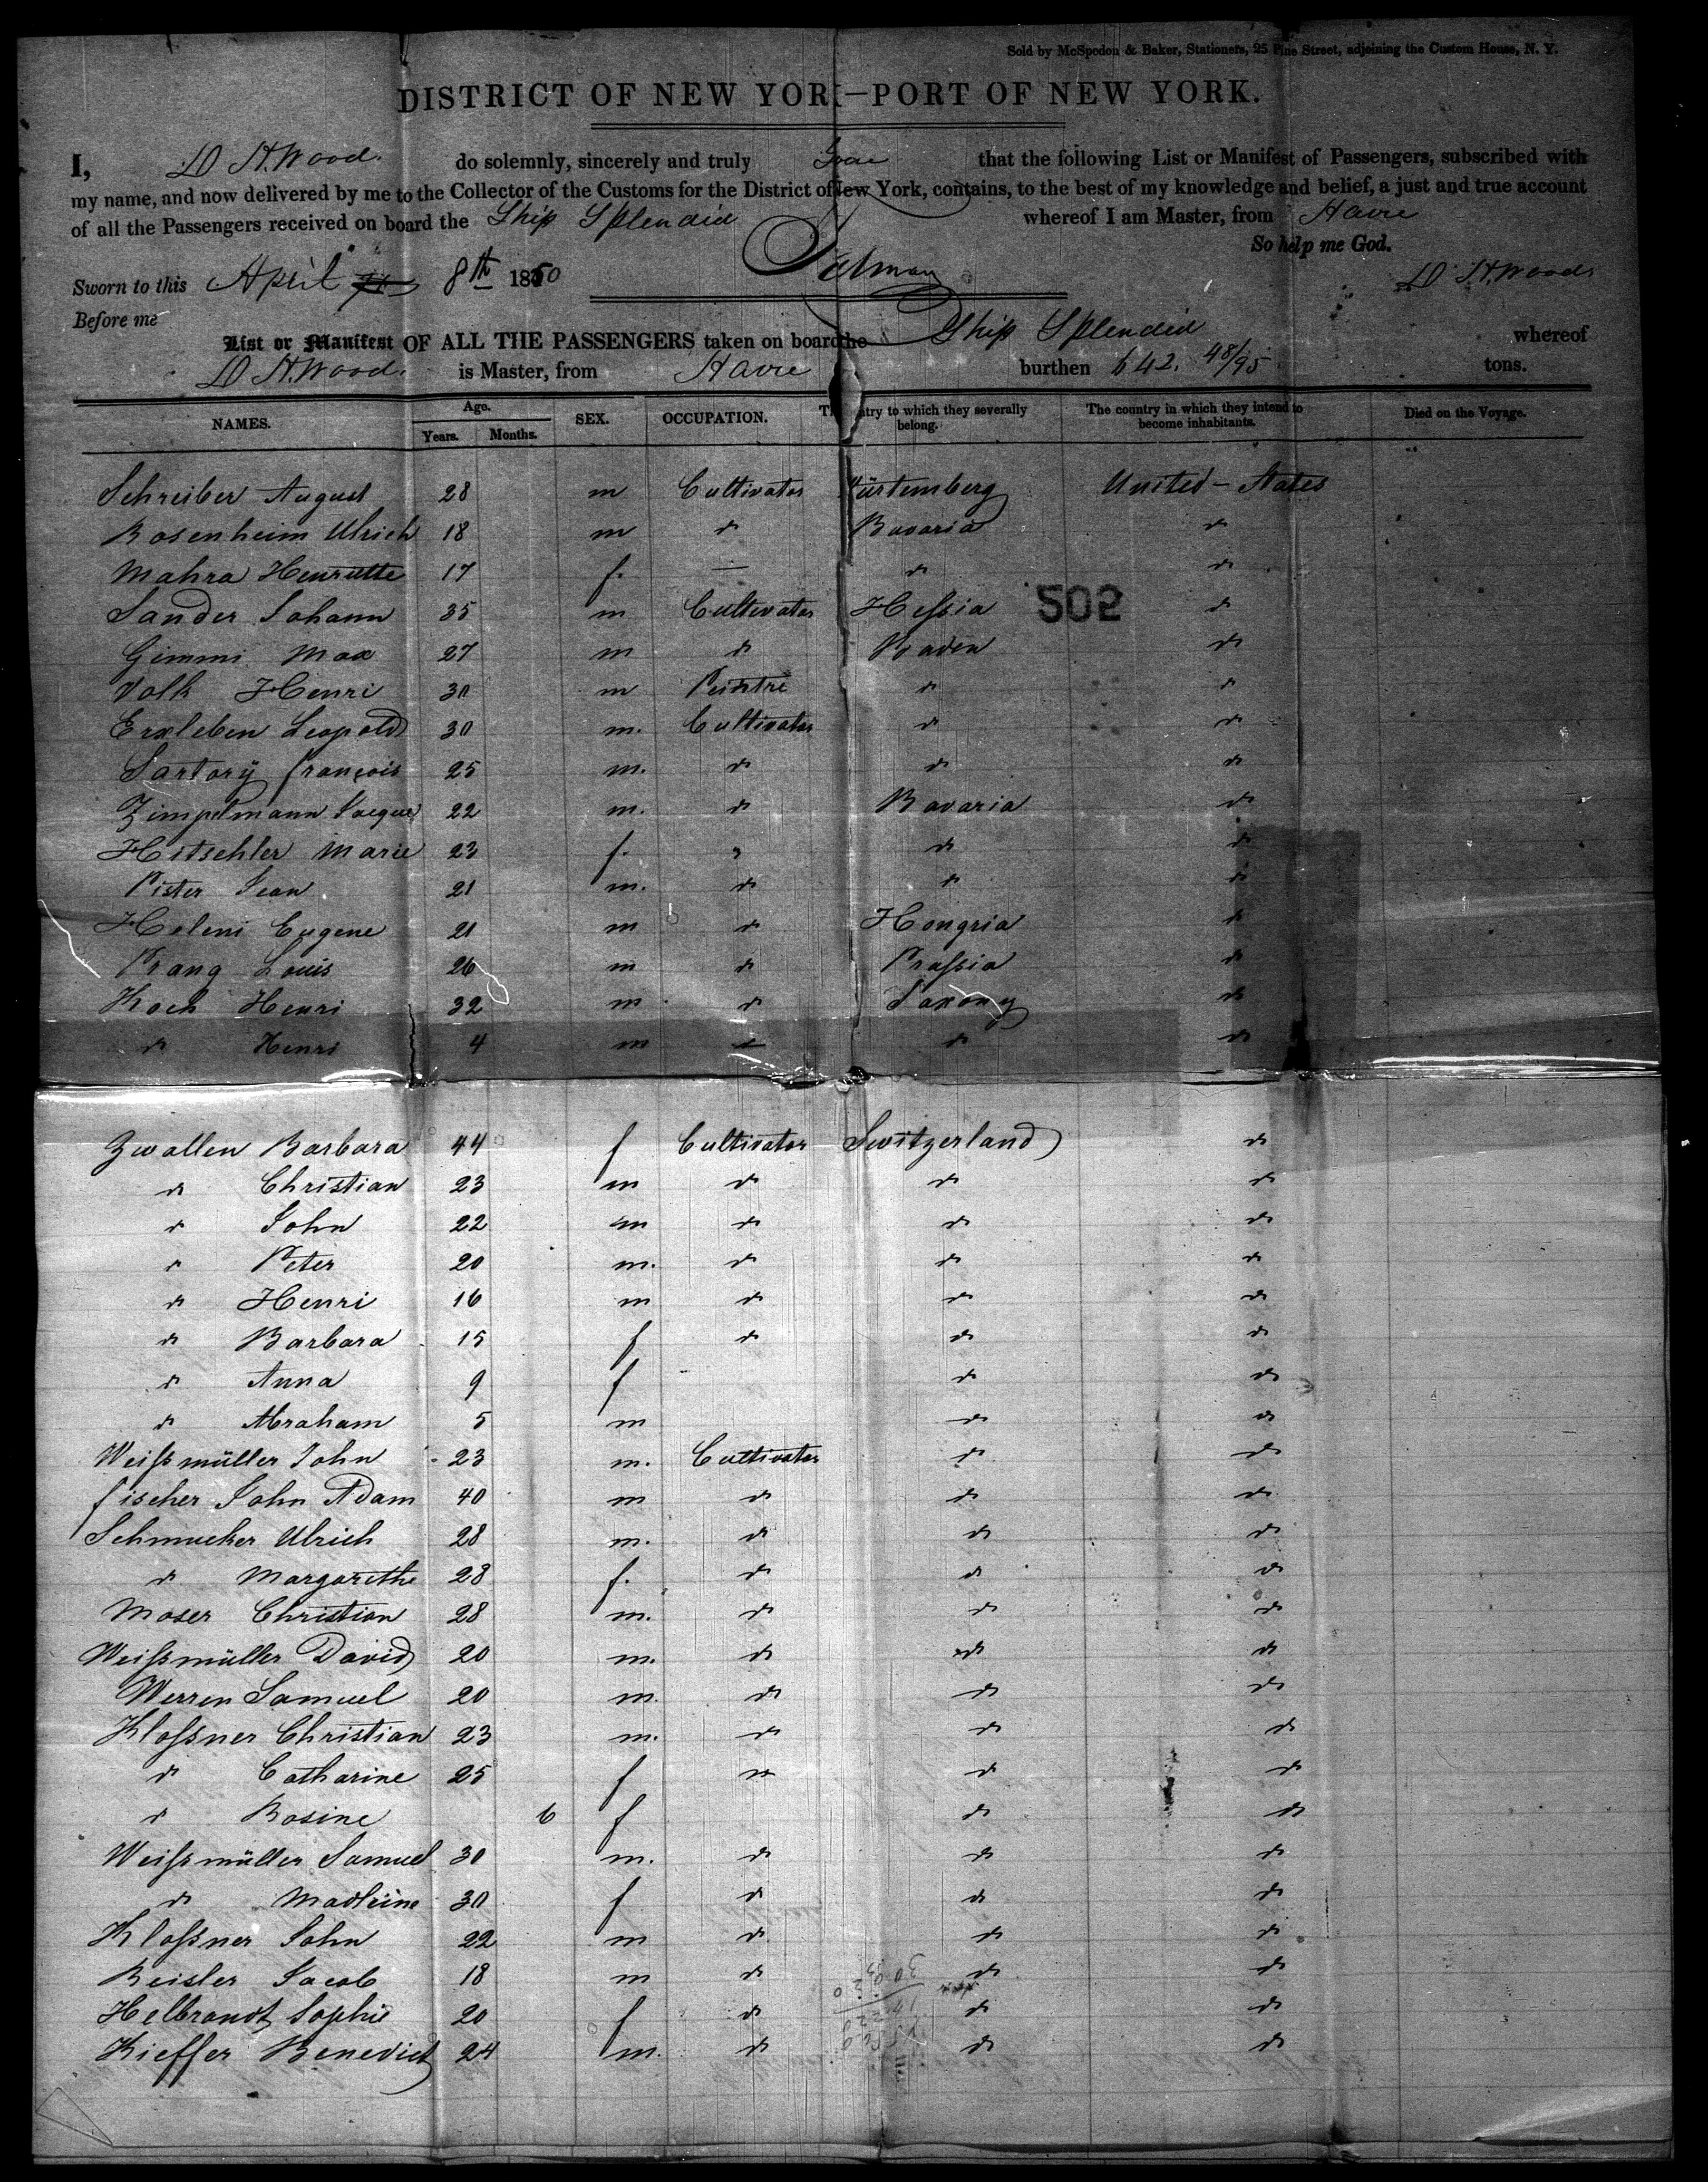 Sold by McSpedon & Baker, Stationers, 25 Pine Street, adjoining the Custom House, N. Y.
DISTRICT OF NEW YOR—PORT OF NEW YORK.
I, D H. Wood. do solemnly, sincerely and truly that the following List or Manifest of Passengers, subscribed with
my name, and now delivered by me to the Collector of the Customs for the District of New York, contains, to the best of my knowledge and belief, a just and true account
of all the Passengers received on board the Ship Splendid whereof I am Master, from Havre
So help me God.
Sworn to this April 8th 1850 D H. Wood
Before me
List or Manifest OF ALL THE PASSENGERS taken on board the Ship Splendid whereof
D H. Wood. is Master, from Havre burthen 642. 48/95 tons.
NAMES. Age. Years. Months. SEX. OCCUPATION. The country to which they severally belong. The country in which they intend to become inhabitants. Died on the Voyage.
Schreiber August 28 m Cultivator Würtemberg United-States
Rosenheim Ulrich 18 m do Bavaria do
Mahra Henrutte 17 f. — do do
Sander Johann 35 m Cultivator Heſsia 502 do
Gimmi Max 27 m do Baden do
Volk Henri 30 m Peintre do do
Erxleben Leopold 30 m. Cultivator do do
Sartorÿ françois 25 m. do do do
Zimpelmann Jacque 22 m. do Bavaria do
Hitschler Marie 23 f. " do do
Pister Jean 21 m. do do do
Heleni Eugene 21 m do Hongria do
Prang Louis 26 m do Pruſsia do
Koch Henri 32 m do Saxony do
do Henri 4 m do do do
Zwallen Barbara 44 f Cultivator Switzerland do
do Christian 23 m do do do
do John 22 m do do do
do Peter 20 m. do do do
do Henri 16 m do do do
do Barbara 15 f do do do
do Anna 9 f do do
do Abraham 5 m do do
Weiſsmüller John 23 m. Cultivator do do
fischer John Adam 40 m do do do
Schmucker Ulrich 28 m. do do do
do Margarethe 28 f. do do do
Moser Christian 28 m. do do do
Weiſsmüller David 20 m. do do do
Werren Samuel 20 m. do do do
Kloſsner Christian 23 m. do do do
do Catharine 25 f do do do
do Rosine 6 f do do
Weiſsmüller Samuel 30 m. do do do
do Madleine 30 f do do do
Kloſsner John 22 m do do do
Beisler Jacob 18 m do do do
Helbrandt Sophie 20 f do do do
Kieffer Benedict 24 m. do do do